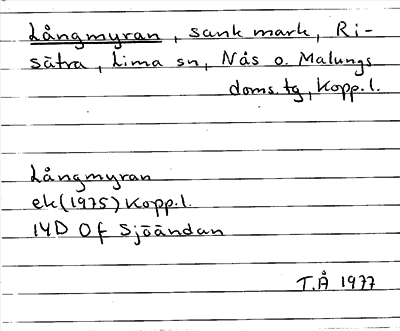 Långmyran, sank mark, Ri-
sätra, Lima sn, Nås o. Malungs
doms.tg, Kopp.l.
Långmyran
ek(1975) Kopp.l.
14D Of Sjöändan
T.Å 1977